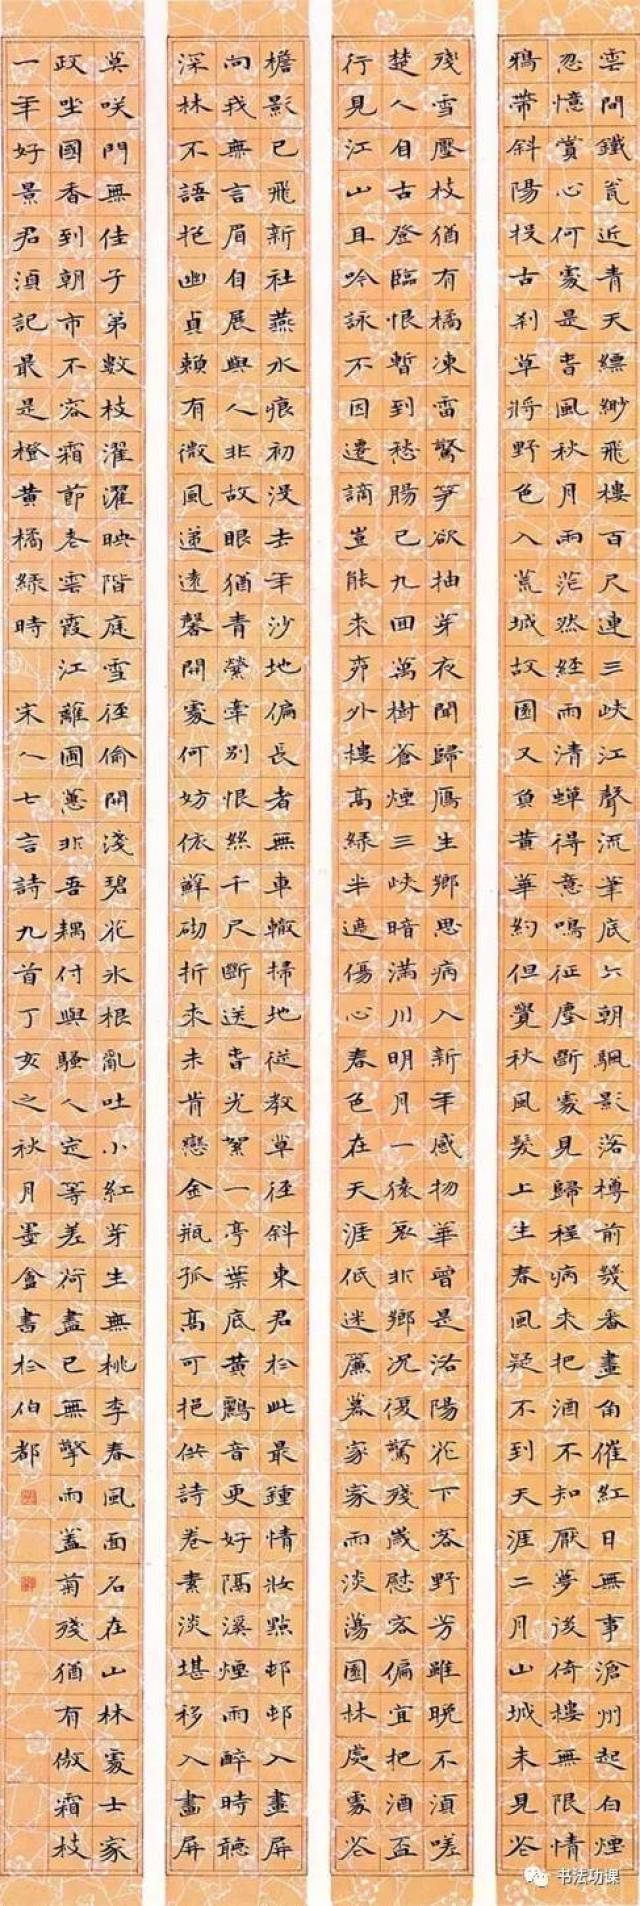 雲間鐵瓮近青天縹緲飛樓百尺連三峽江聲流筆底六朝颿影落樽前幾番畫角催紅日無事滄州起白煙
忽憶賞心何處是旹風秋月雨茫然經雨清蟬得意鳴征塵斷處見歸程病來把酒不知厭夢後倚樓無限情
鴉帶斜陽投古刹草將野色入荒城故園又負黃華約但覺秋風髮上生春風疑不到天涯二月山城未見花
殘雪壓枝猶有橘凍雷驚筍欲抽芽夜聞歸鴈生鄉思病入新年感物華曾是洛陽花下客野芳雖晚不須嗟
楚人自古登臨恨暫到愁腸已九回萬樹蒼煙三峽暗滿川明月一猿哀非鄉況復驚殘歲慰客偏宜把酒盃
行見江山且吟詠不因遷謫豈能來柳外樓高綠半遮傷心春色在天涯低迷簾幕家家雨淡蕩園林處處花
檐影已飛新社燕水痕初沒去年沙地偏長者無車轍掃地從教草徑斜東君於此最鍾情妝點邨邨入畫屏
向我無言眉自展與人非故眼猶青縈牽別恨絲千尺斷送旹光絮一亭葉底黃鸝音更好隔溪煙雨醉時聽
深林不語抱幽貞賴有微風遞遠馨開處何妨依蘚砌折來未肯戀金瓶孤高可挹供詩卷素淡堪移入畫屏
莫笑門無佳子弟數枝濯濯映階庭雪徑偷開淺碧花冰根亂吐小紅芽生無桃李春風面名在山林處士家
政坐國香到朝市不容霜節老雲霞江蘺圃蕙非吾耦付與騷人定等差荷盡已無擎雨蓋菊殘猶有傲霜枝
一年好景君須記最是橙黃橘綠時 宋人七言詩九首丁亥之秋月墨盦書於伯都
书法功课